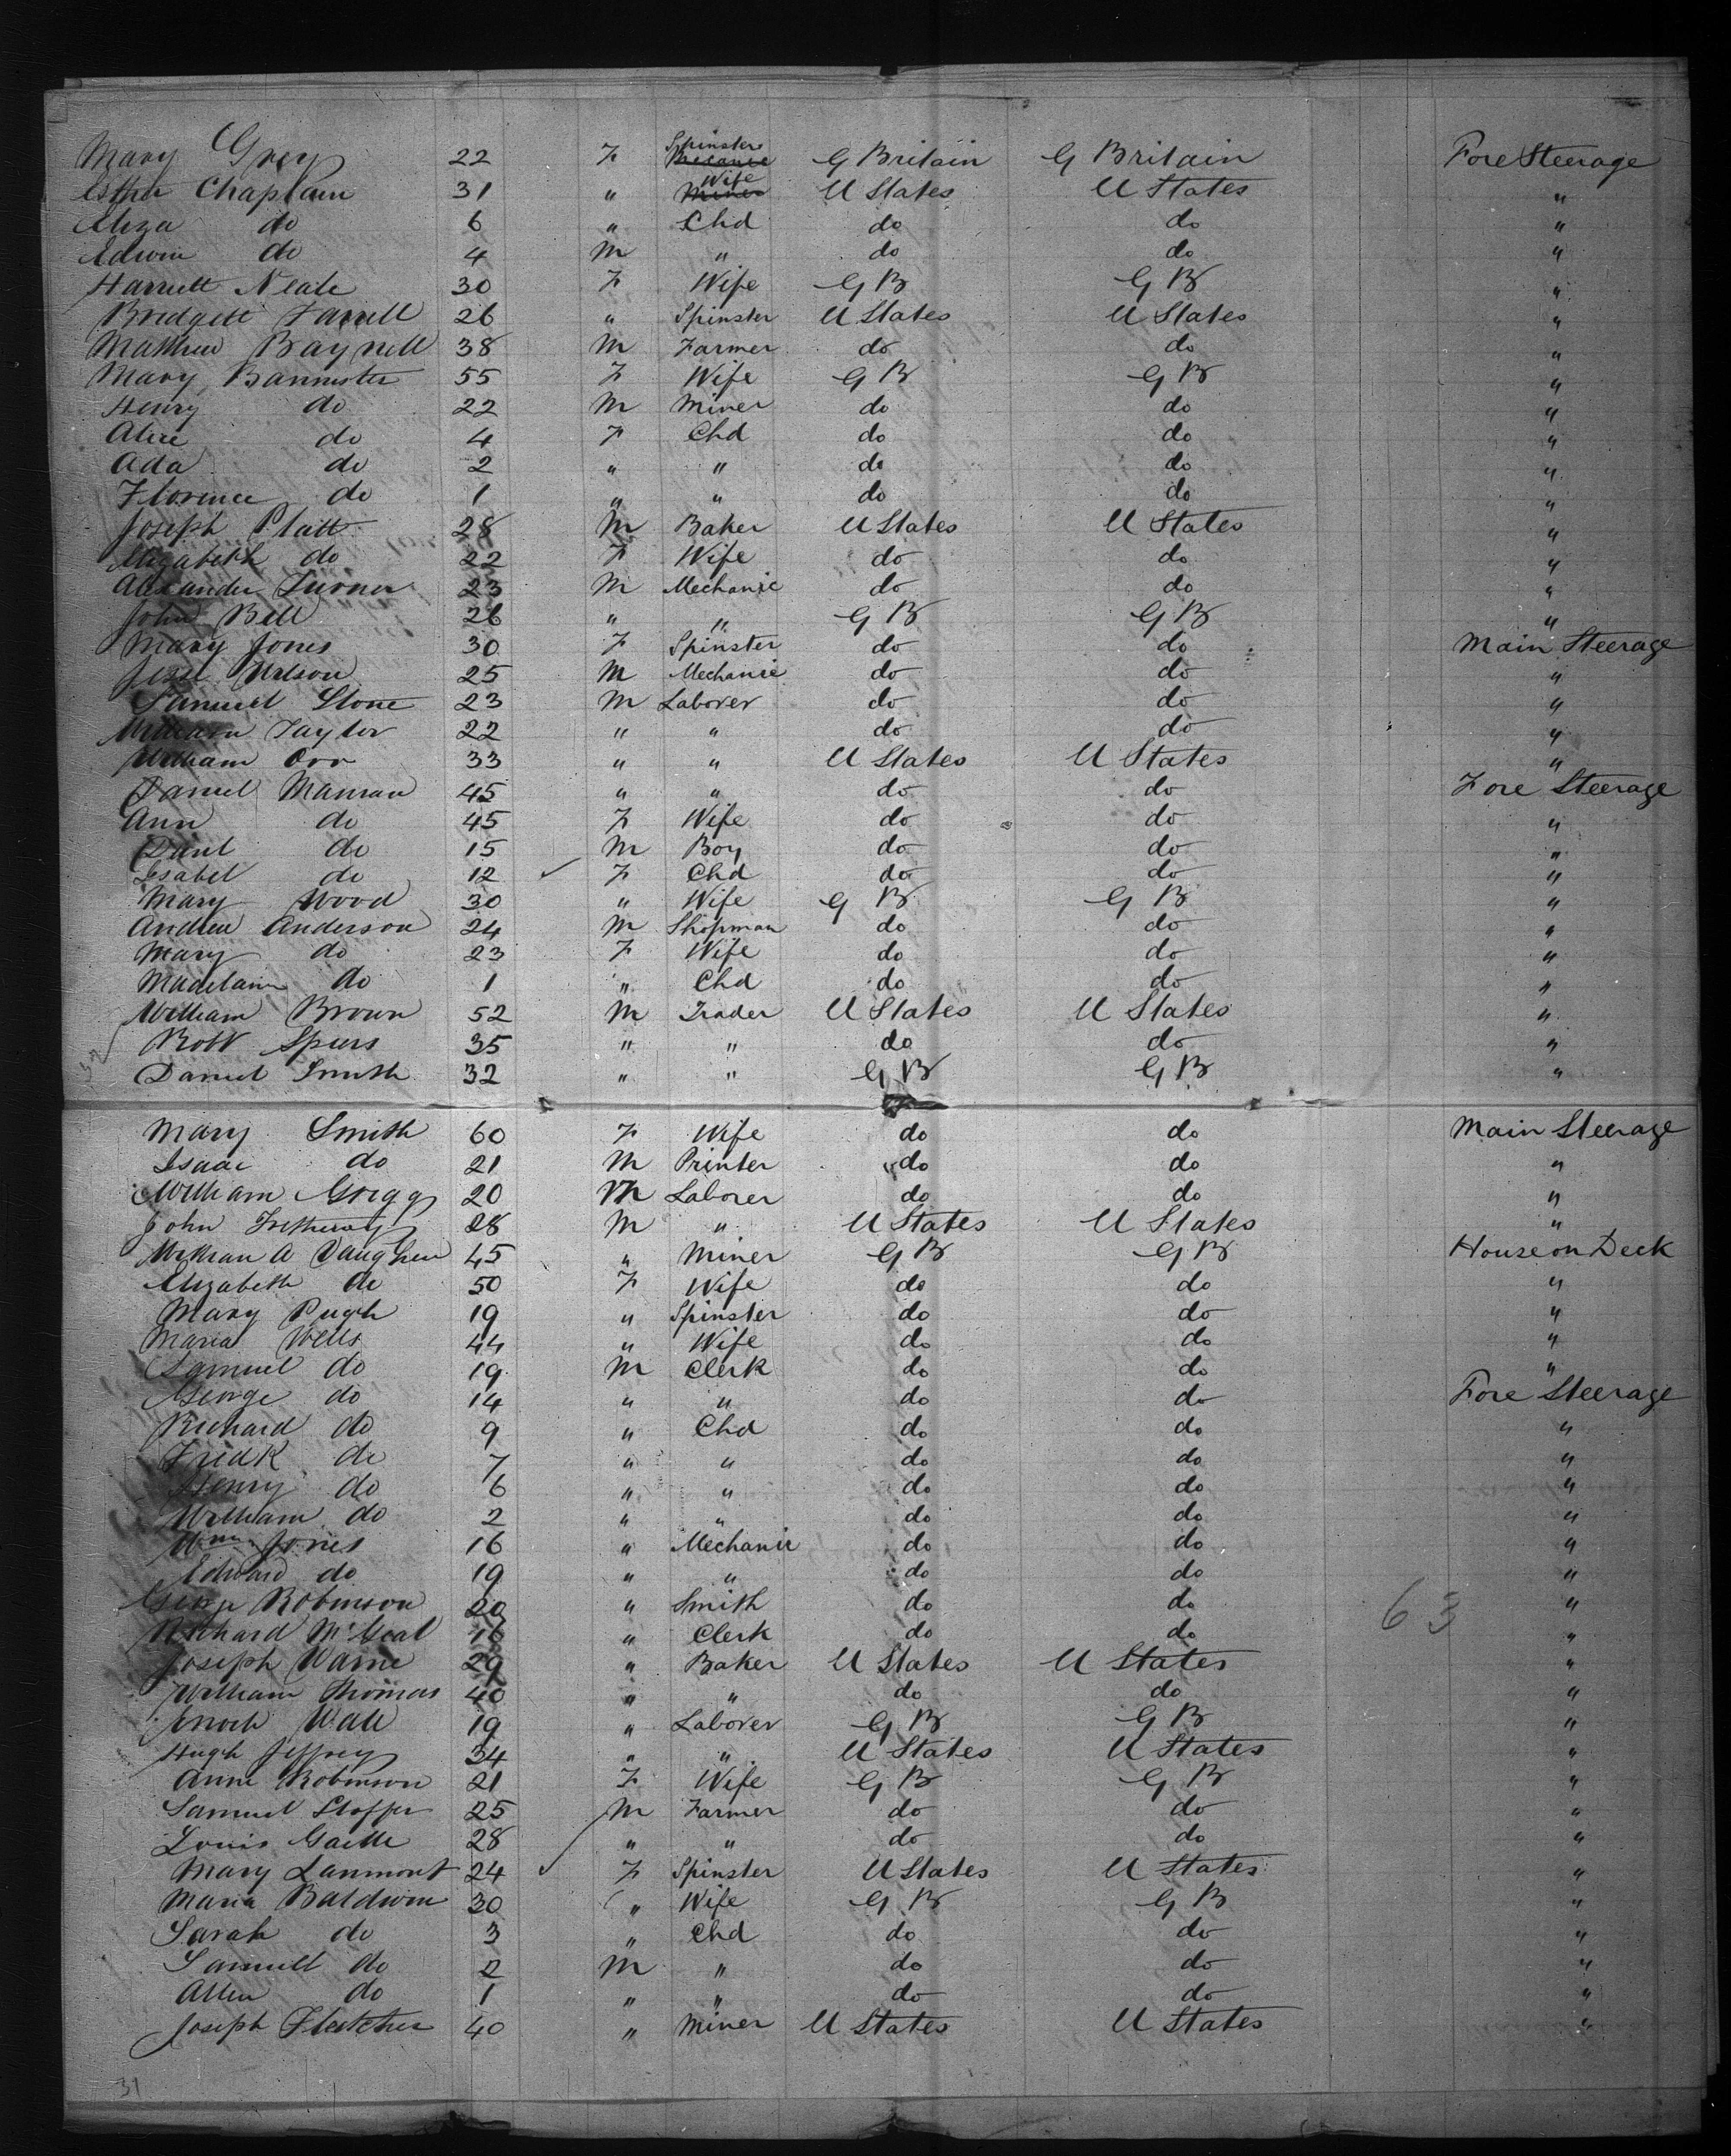 Mary Grey 22 F Spinster Mecanic G Britain G Britain Fore Steerage
Esther Chaplain 31 " Wife Miner U States U States "
Eliza do 6 " Chd do do "
Edwin do 4 M " do do "
Harriett Neale 30 F Wife G B G B "
Bridgett Farrell 26 " Spinster U States U States "
Matthew Baynell 38 M Farmer do do "
Mary Bannister 55 F Wife G B G B "
Henry do 22 M Miner do do "
Alice do 4 F Chd do do "
Ada do 2 " " do do "
Florence do 1 " " do do "
Joseph Platt 28 M Baker U States U States "
Elizabeth do 22 F Wife do do "
Alexander Turner 23 M Mechanic do do "
John Bell 26 " " G B G B "
Mary Jones 30 F Spinster do do Main Steerage
Jesse Wilson 25 M Mechanic do do "
Samuel Stone 23 M Laborer do do "
William Taylor 22 " " do do "
William Orr 33 " " U States U States "
Daniel Manran 45 " " do do Fore Steerage
Ann do 45 F Wife do do "
Danl do 15 M Boy do do "
Isabel do 12 F Chd do do "
Mary Wood 30 " Wife G B G B "
Andrew Anderson 24 M Shopman do do "
Mary do 23 F Wife do do "
Madelain do 1 " Chd do do "
William Brown 52 M Trader U States U States "
Robt Spiers 35 " " do do "
Daniel Smith 32 " " G B G B "
Mary Smith 60 F Wife do do Main Steerage
Isaac do 21 M Printer do do "
William Grigg 20 M Laborer do do "
John 28 M " U States U States "
William A Vaughen 45 " Miner G B G B House on Deck
Elizabeth do 50 F Wife do do "
Mary Pugh 19 " Spinster do do "
Maria Wells 44 " Wife do do "
Samuel do 19 M Clerk do do "
George do 14 " " do do Fore Steerage
Richard do 9 " Chd do do "
Fredk do 7 " " do do "
Henry do 6 " " do do "
William do 2 " " do do "
Wm Jones 16 " Mechanic do do "
Edward do 19 " " do do "
George Robinson 20 " Smith do do "
Richard McGeal 16 " Clerk do do "
63
Joseph Warne 29 " Baker U States U States "
William Thomas 40 " " do do "
Enoch Wall 19 " Laborer G B G B "
Hugh Jeffrey 34 " " U States U States "
Anne Robinson 21 F Wife G B G B "
Samuel Stoffer 25 M Farmer do do "
Louis Gaille 28 " " do do "
Mary Lanmont 24 F Spinster U States U States "
Maria Baldwin 30 " Wife G B G B "
Sarah do 3 " Chd do do "
Samuel do 2 M " do do "
Allen do 1 " " do do "
Joseph Fletcher 40 " Miner U States U States "
31